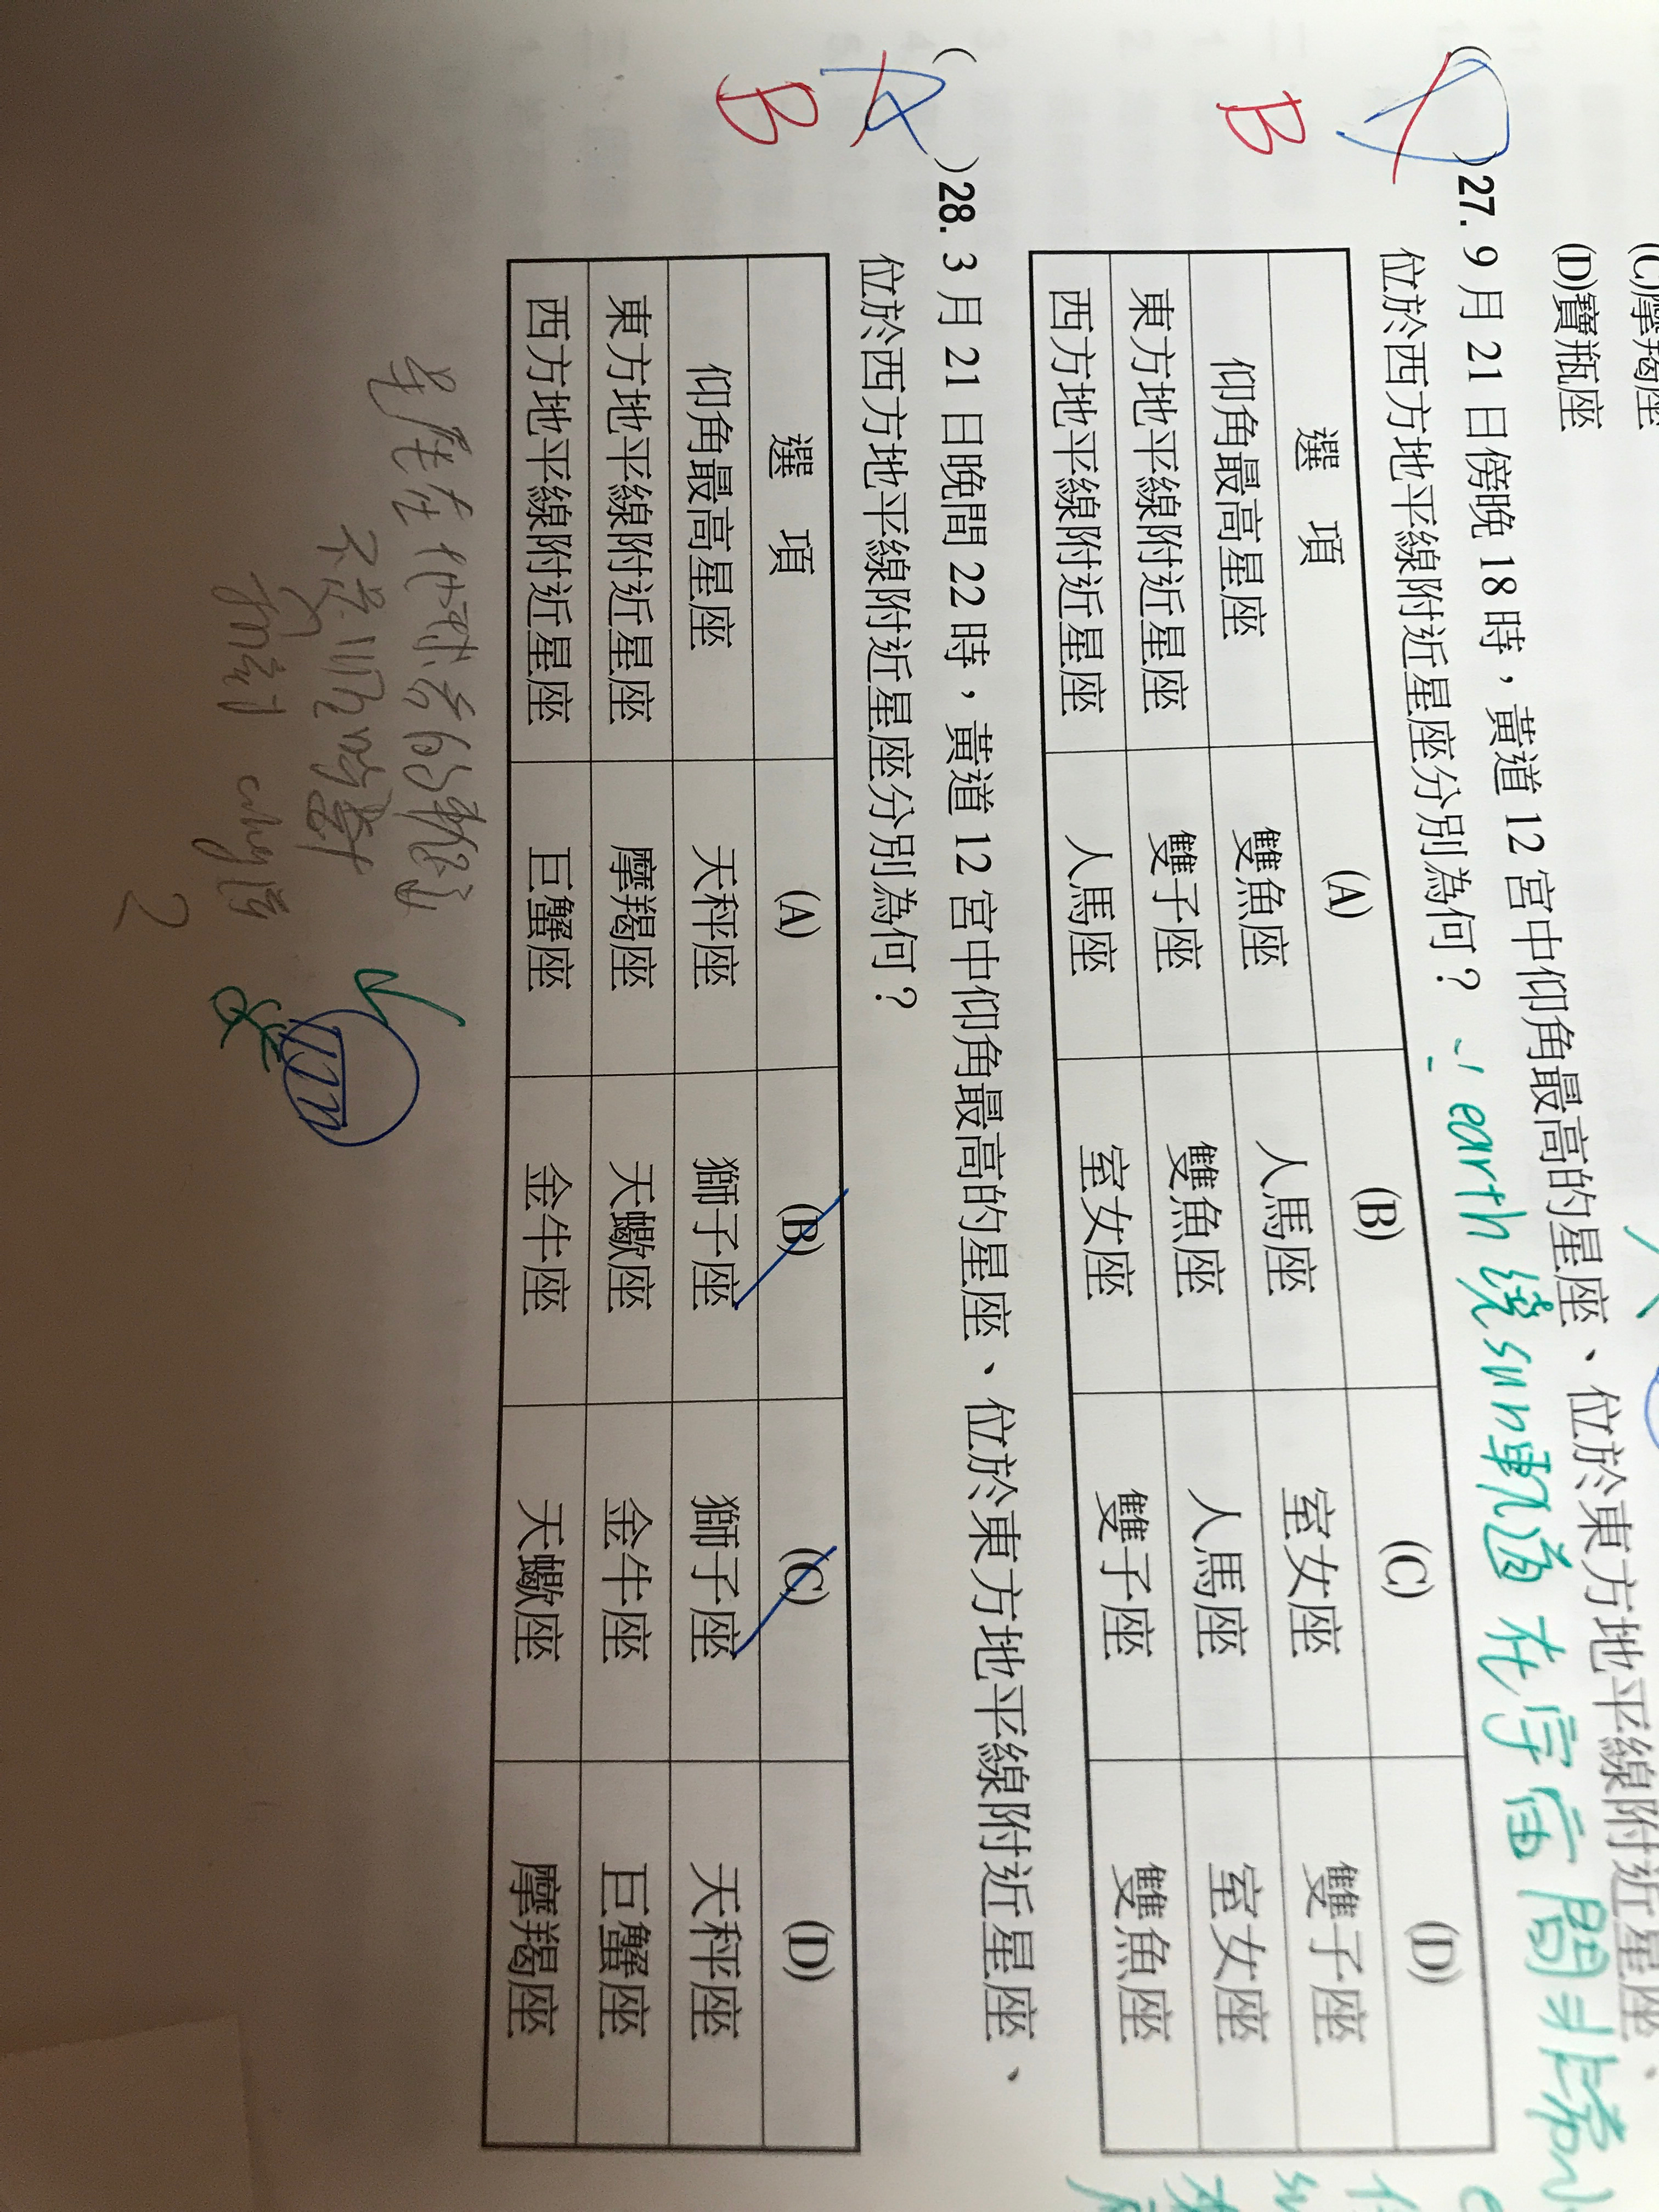 (C)摩羯座
(D)寶瓶座
B
( )27. 9 月 21 日傍晚 18 時，黃道 12 宮中仰角最高的星座、位於東方地平線附近星座、
位於西方地平線附近星座分別為何？
∵ earth 繞 sun 軌道 在宇宙間
選 項 (A) (B) (C) (D)
仰角最高星座 雙魚座 人馬座 室女座 雙子座
東方地平線附近星座 雙子座 雙魚座 人馬座 室女座
西方地平線附近星座 人馬座 室女座 雙子座 雙魚座
A
B
( )28. 3 月 21 日晚間 22 時，黃道 12 宮中仰角最高的星座、位於東方地平線附近星座、
位於西方地平線附近星座分別為何？
選 項 (A) (B) (C) (D)
仰角最高星座 天秤座 獅子座 獅子座 天秤座
東方地平線附近星座 摩羯座 天蠍座 金牛座 巨蟹座
西方地平線附近星座 巨蟹座 金牛座 天蠍座 摩羯座
星座在地球
不是順時針
why